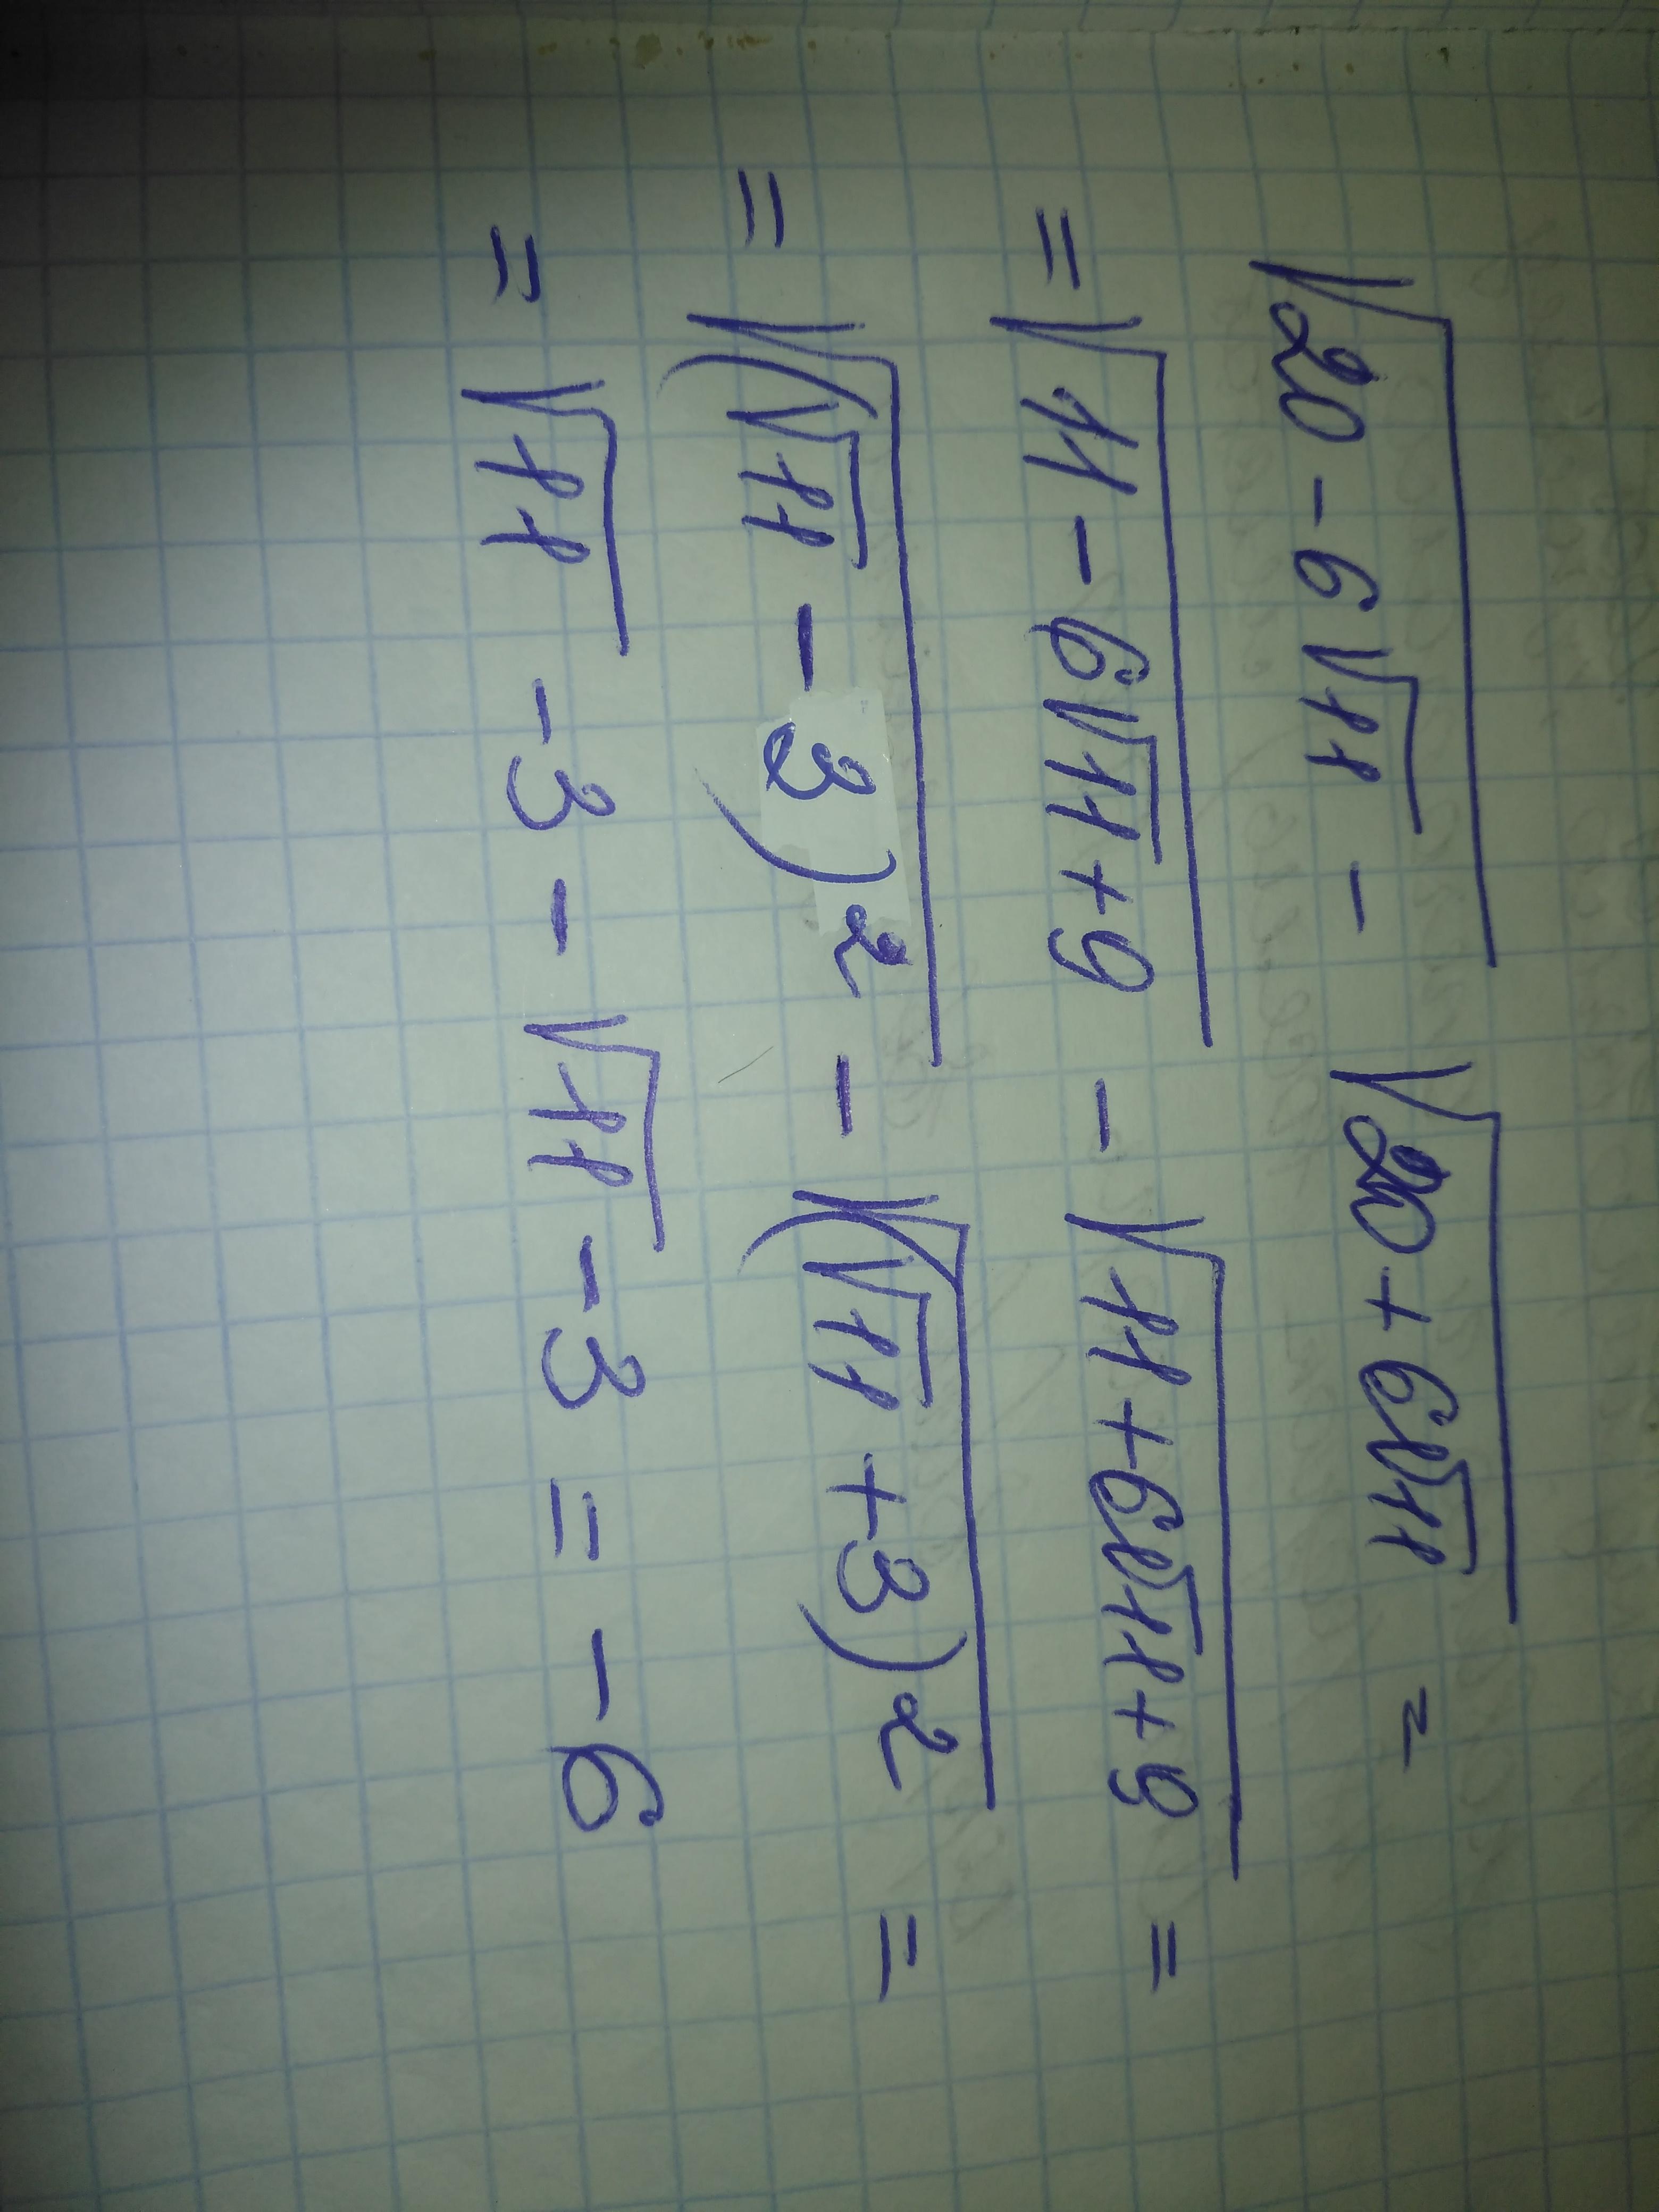 √(20 - 6√11) - √(20 + 6√11) =
= √(11 - 6√11 + 9) - √(11 + 6√11 + 9) =
= √((√11 - 3)²) - √((√11 + 3)²) =
= √11 - 3 - √11 - 3 = - 6